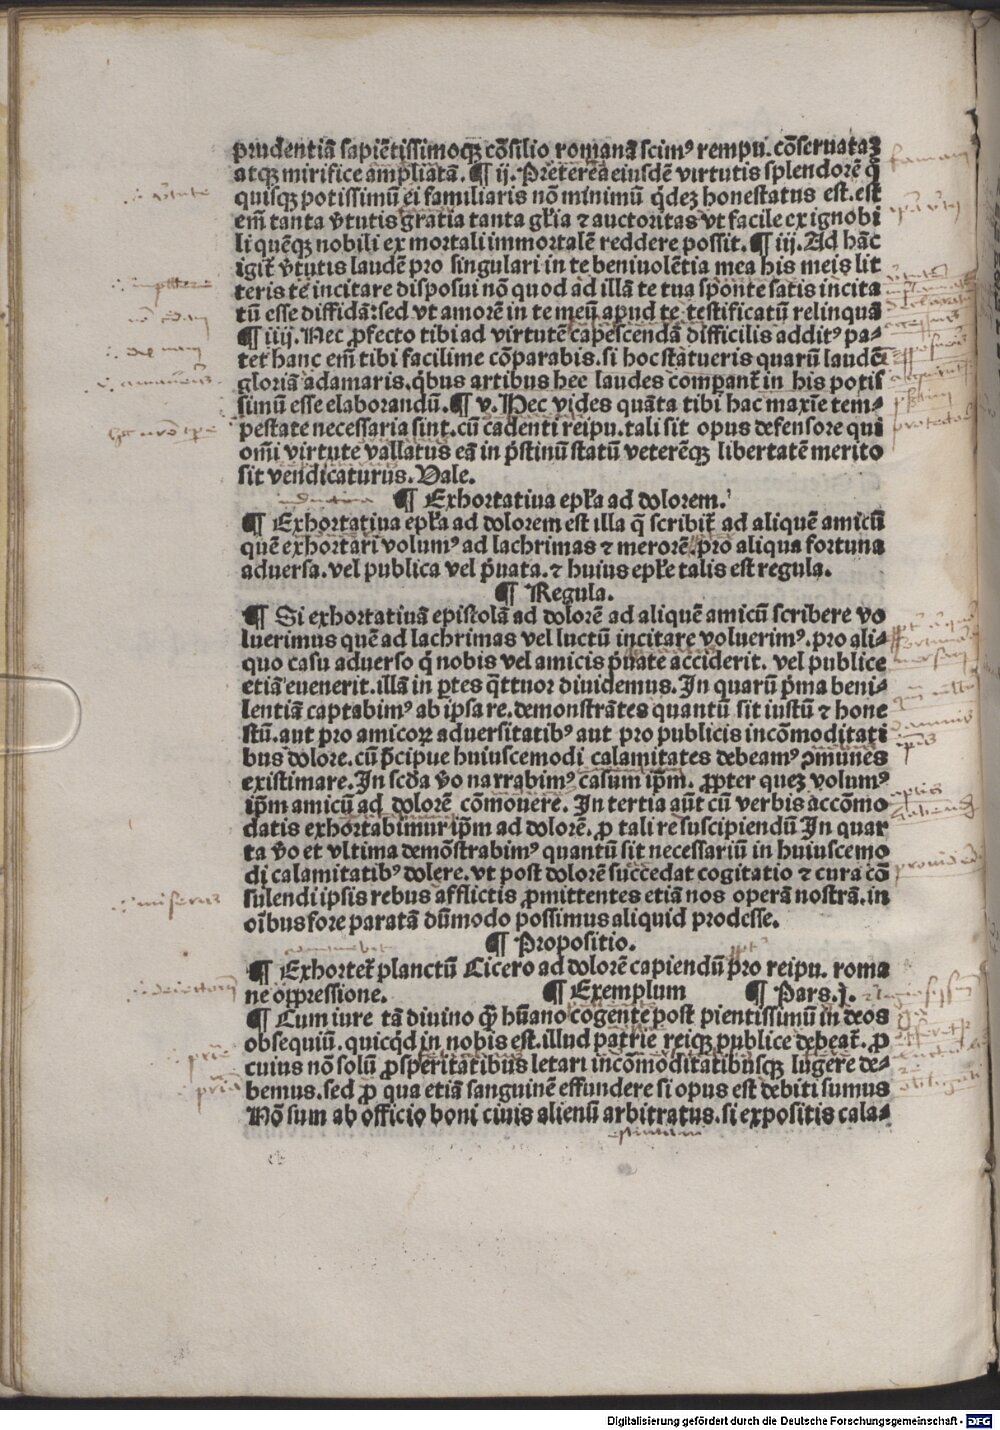 prudentiā sapiētissimoqꝫ cōsilio romanā scimꝰ rempu. cōseruataꝫ
atqꝫ mirifice ampliatā. ¶ ij. Preterea eiusdē virtutis splendorē q̄
quisqꝫ potissimū ei familiaris nō minimū q̄dez honestatus est. est
em̄ tanta v̄tutis gratia tanta gl̄ia ⁊ auctoritas vt facile ex ignobi
li quēqꝫ nobili ex mortali immortalē reddere possit. ¶ iij. Ad hāc
igit̄ v̄tutis laudē pro singulari in te beniuolētia mea his meis lit
teris te incitare disposui nō quod ad illā te tua sponte satis incita
tū esse diffidā: sed vt amorē in te meū apud te testificatū relinquā
¶ iiij. Nec ꝓfecto tibi ad virtutē capescendā difficilis additꝰ pa-
tet hanc em̄ tibi facilime cōparabis. si hoc statueris quarū laudē
gloriā adamaris. q̄bus artibus hee laudes compant̄ in his potis
simū esse elaborandū. ¶ v. Hec vides quāta tibi hac maxīe tem-
pestate necessaria sint. cū cadenti reipu. tali sit opus defensore qui
om̄i virtute vallatus eā in p̄stinū statū veterēqꝫ libertatē merito
sit vendicaturus. Vale.
¶ Exhortatiua epl̄a ad dolorem.
¶ Exhortatiua epl̄a ad dolorem est illa q̄ scribit̄ ad aliquē amicū
quē exhortari volumꝰ ad lachrimas ⁊ merorē. pro aliqua fortuna
aduersa. vel publica vel p̄uata. ⁊ huius epl̄e talis est regula.
¶ Regula.
¶ Si exhortatiuā epistolā ad dolorē ad aliquē amicū scribere vo
luerimus quē ad lachrimas vel luctū incitare voluerimꝰ. pro ali-
quo casu aduerso q̄ nobis vel amicis p̄uate acciderit. vel publice
etiā euenerit. illā in ꝑtes q̄ttuor diuidemus. In quarū p̄ma beni-
lentiā captabimꝰ ab ipsa re. demonstrātes quantū sit iustū ⁊ hone
stū. aut pro amicoꝝ aduersitatibꝰ aut pro publicis incōmoditati
bus dolore. cū p̄cipue huiuscemodi calamitates debeamꝰ ↄmunes
existimare. In scd̄a v̄o narrabimꝰ casum ip̄m. ꝓpter quez volumꝰ
ip̄m amicū ad dolorē cōmouere. In tertia aūt cū verbis accōmo
datis exhortabimur ip̄m ad dolorē. ꝓ tali re suscipiendū In quar
ta v̄o et vltima demōstrabimꝰ quantū sit necessariū in huiuscemo
di calamitatibꝰ dolere. vt post dolorē succedat cogitatio ⁊ cura cō
sulendi ipsis rebus afflictis ꝓmittentes etiā nos operā nostrā. in
oībus fore paratā dūmodo possimus aliquid prodesse.
¶ Propositio.
¶ Exhortet̄ planctū Cicero ad dolorē capiendū pro reipu. roma
ne oppressione. ¶ Exemplum ¶ Pars. j.
¶ Cum iure tā diuino q̄ hūano cogente post pientissimū in deos
obsequiū. quicq̄d in nobis est. illud patrie reiqꝫ publice debeat̄. ꝓ
cuius nō solū ꝓsperitatibus letari incōmoditatibusqꝫ lugere de-
bemus. sed ꝓ qua etiā sanguinē effundere si opus est debiti sumus
Nō sum ab officio boni ciuis alienū arbitratus. si expositis cala-
Digitalisierung gefördert durch die Deutsche Forschungsgemeinschaft - DFG